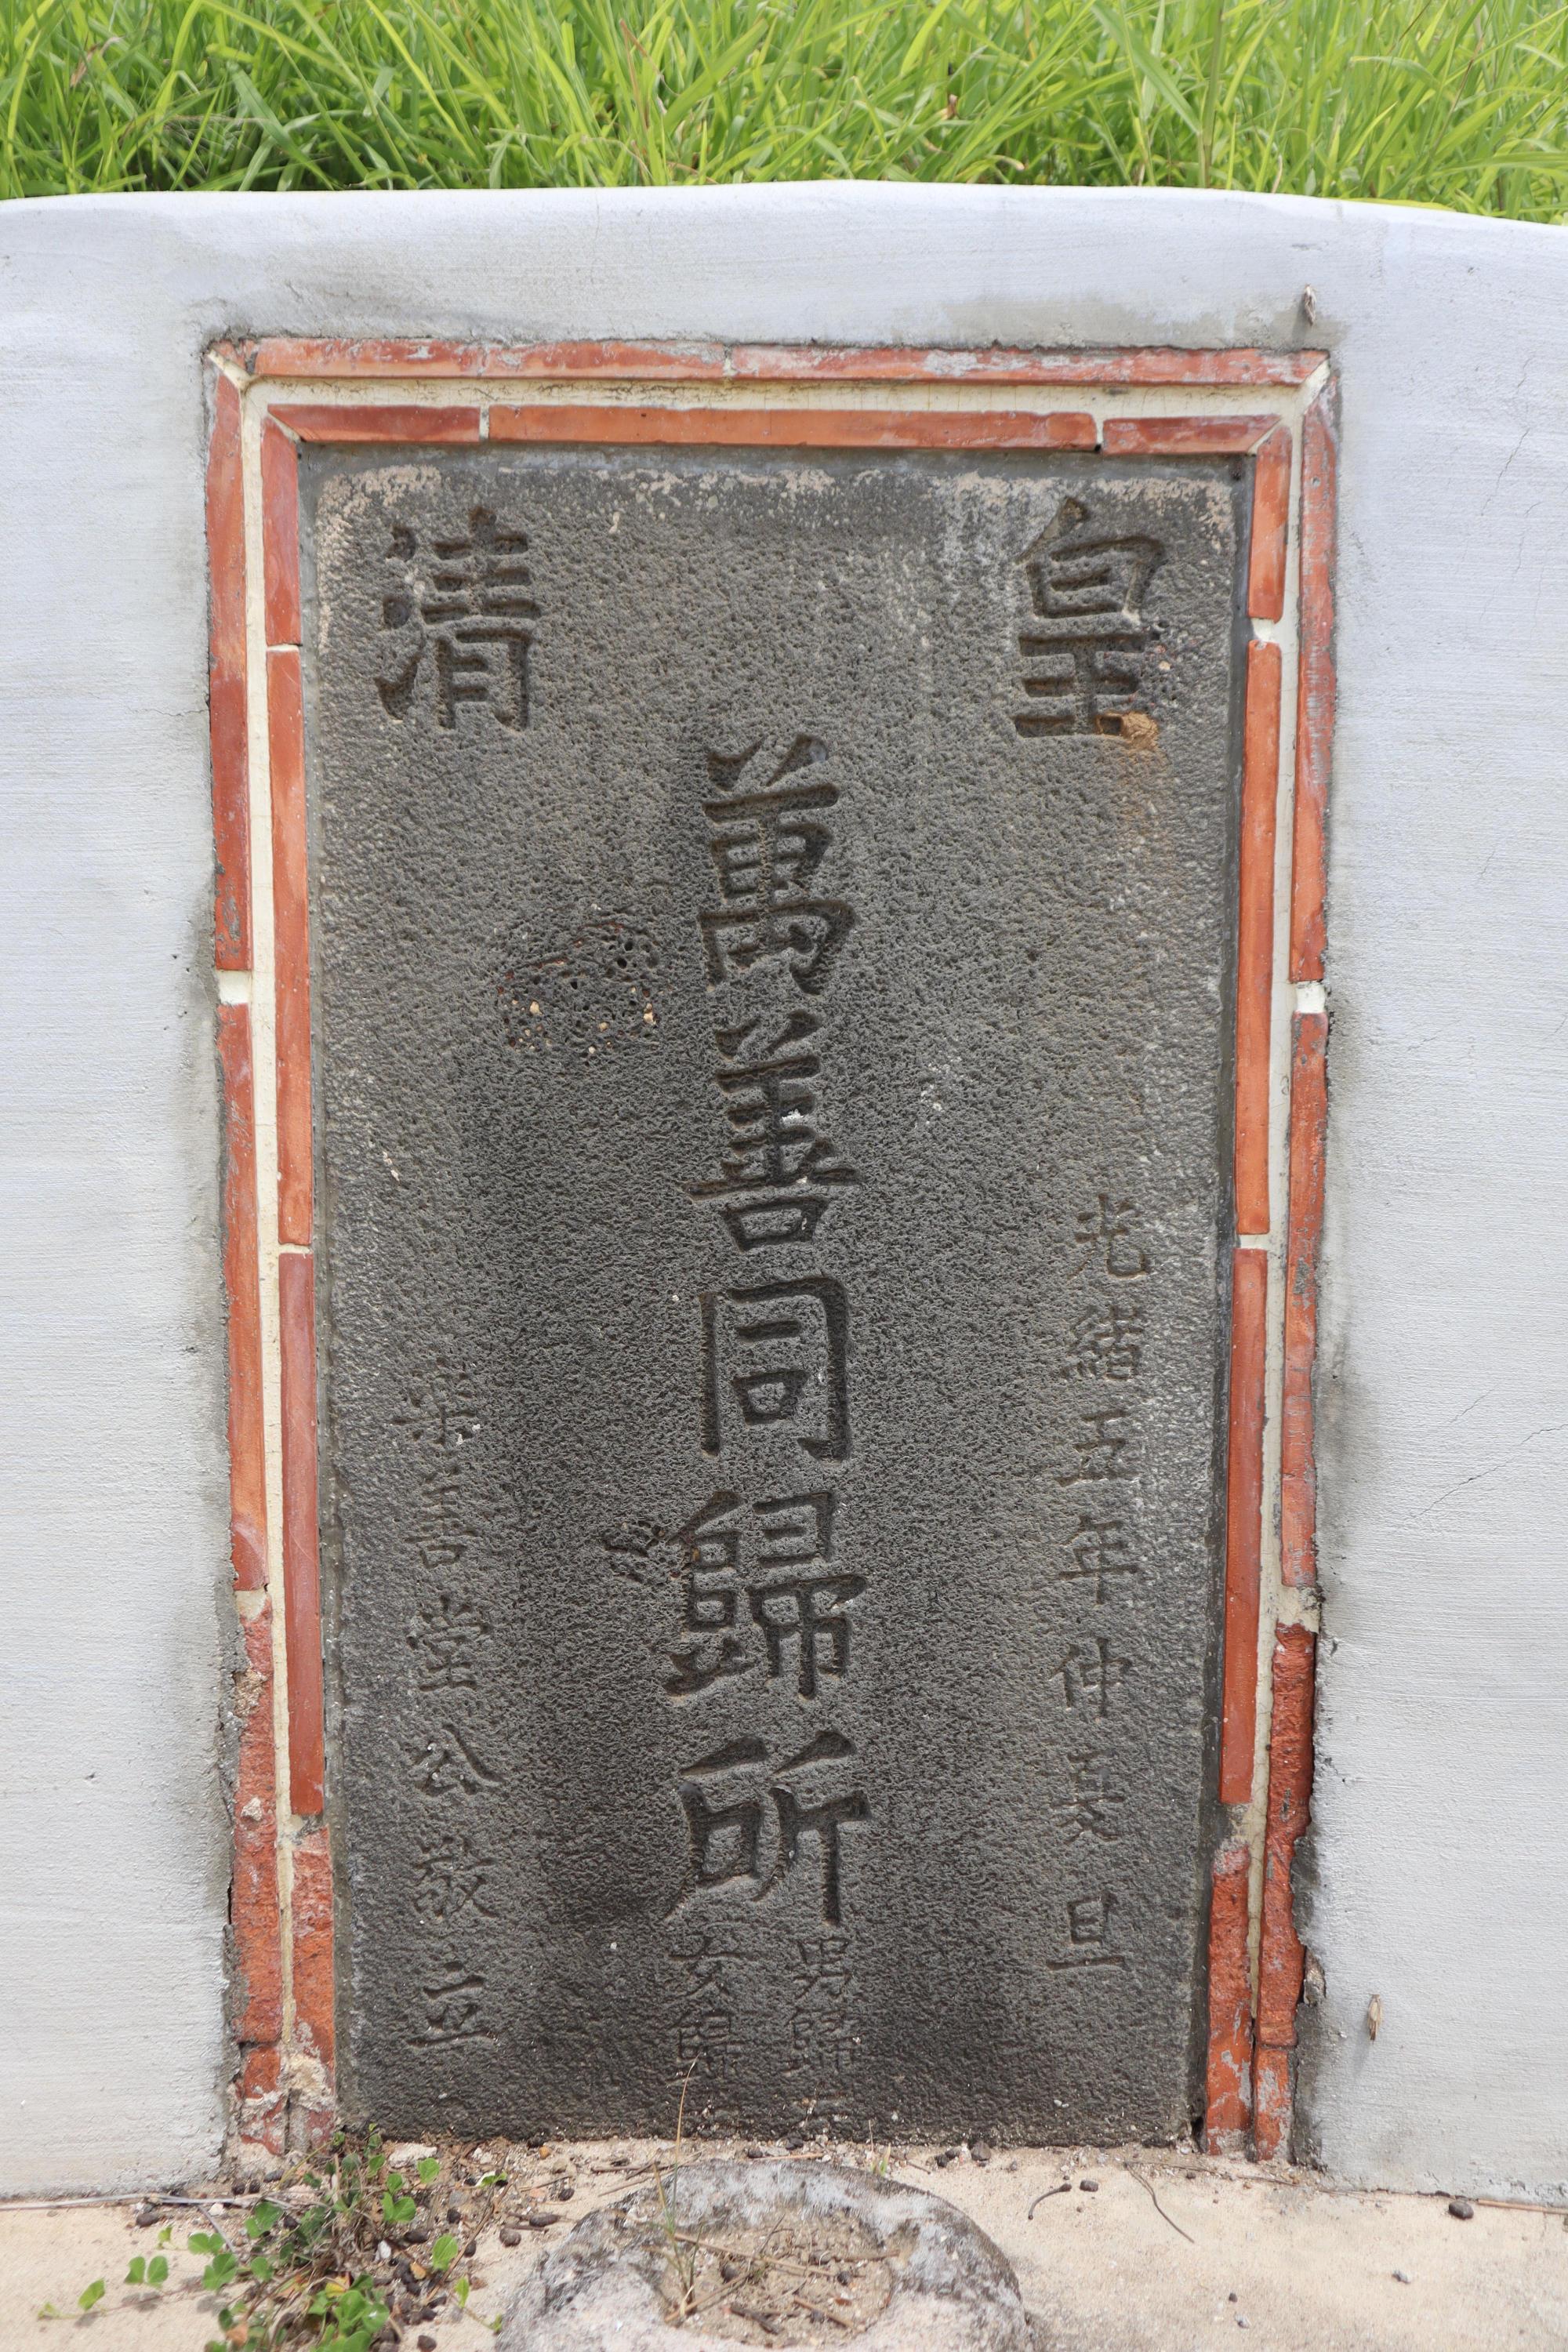 皇清
光緒五年仲夏旦
萬善同歸所
男歸
女歸
樂善堂公敬立